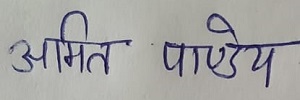 अमित पाण्डेय